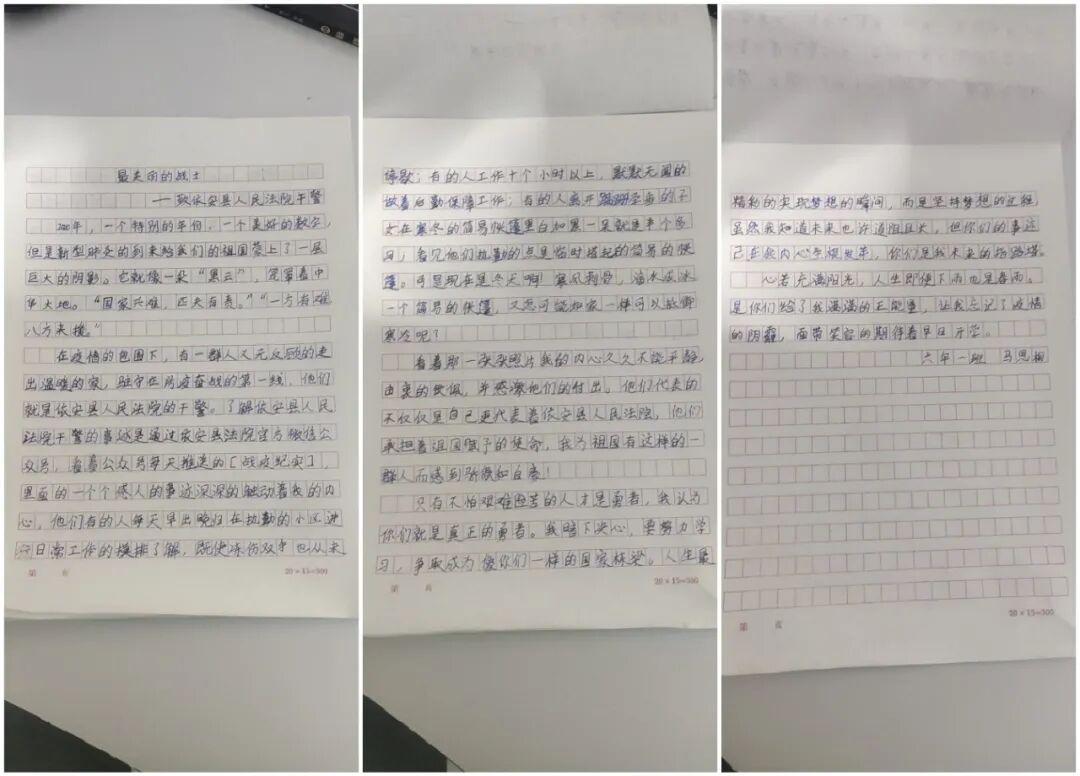 最美丽的战士
——致依安县人民法院干警
2020年，一个特别的年份，一个美好的数字，
但是新型肺炎的到来给我们的祖国蒙上了一层
巨大的阴影。它就像一朵“黑云”，笼罩着中
华大地。“国家兴难，匹夫有责。”“一方有难
八方来援。”
在疫情的包围下，有一群人义无反顾的走
出温暖的家，驻守在防疫奋战的第一线，他们
就是依安县人民法院的干警。了解依安县人民
法院干警的事迹是通过依安县法院官方微信公
众号，看着公众号每天推送的［战疫纪实］，
里面的一个个感人的事迹深深的触动着我的内
心，他们有的人每天早出晚归在执勤的小区进
行日常工作的摸排了解，既使冻伤双手也从未
停歇；有的人工作十个小时以上，默默无闻的
做着后勤保障工作；有的人离开嗷嗷待哺的子
女在寒冬的简易帐篷里白加黑一呆就是半个多
月；看见他们执勤的点是临时搭起的简易的帐
篷。可是现在是冬天啊！寒风刺骨，滴水成冰
一个简易的帐篷，又怎可能如家一样可以抵御
寒冷呢？
看着那一张张照片我的内心久久不能平静，
由衷的敬佩，并感激他们的付出。他们代表的
不仅仅是自己更代表着依安县人民法院，他们
承担着祖国赋予的使命，我为祖国有这样的一
群人而感到骄傲和自豪！
只有不怕艰难困苦的人才是勇者，我认为
你们就是真正的勇者。我暗下决心，要努力学
习，争取成为像你们一样的国家栋梁。人生最
精彩的实现梦想的瞬间，而是坚持梦想的过程，
虽然我知道未来也许道阻且长，但你们的事迹
已在我内心生根发芽，你们是我未来的指路塔。
心若充满阳光，人生即便下雨也是春雨。
是你们给了我满满的正能量，让我忘记了疫情
的阴霾，面带笑容的期待着早日开学。
六年一班 马思
第 页
20×15=300
第 页
20×15=300
第 页
20×15=300